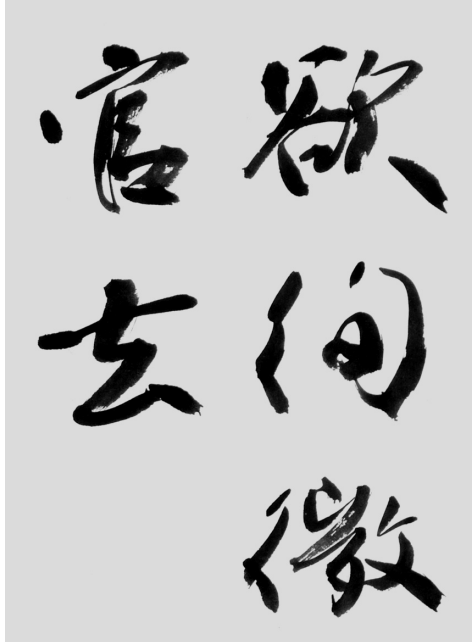 欲徇微
官去